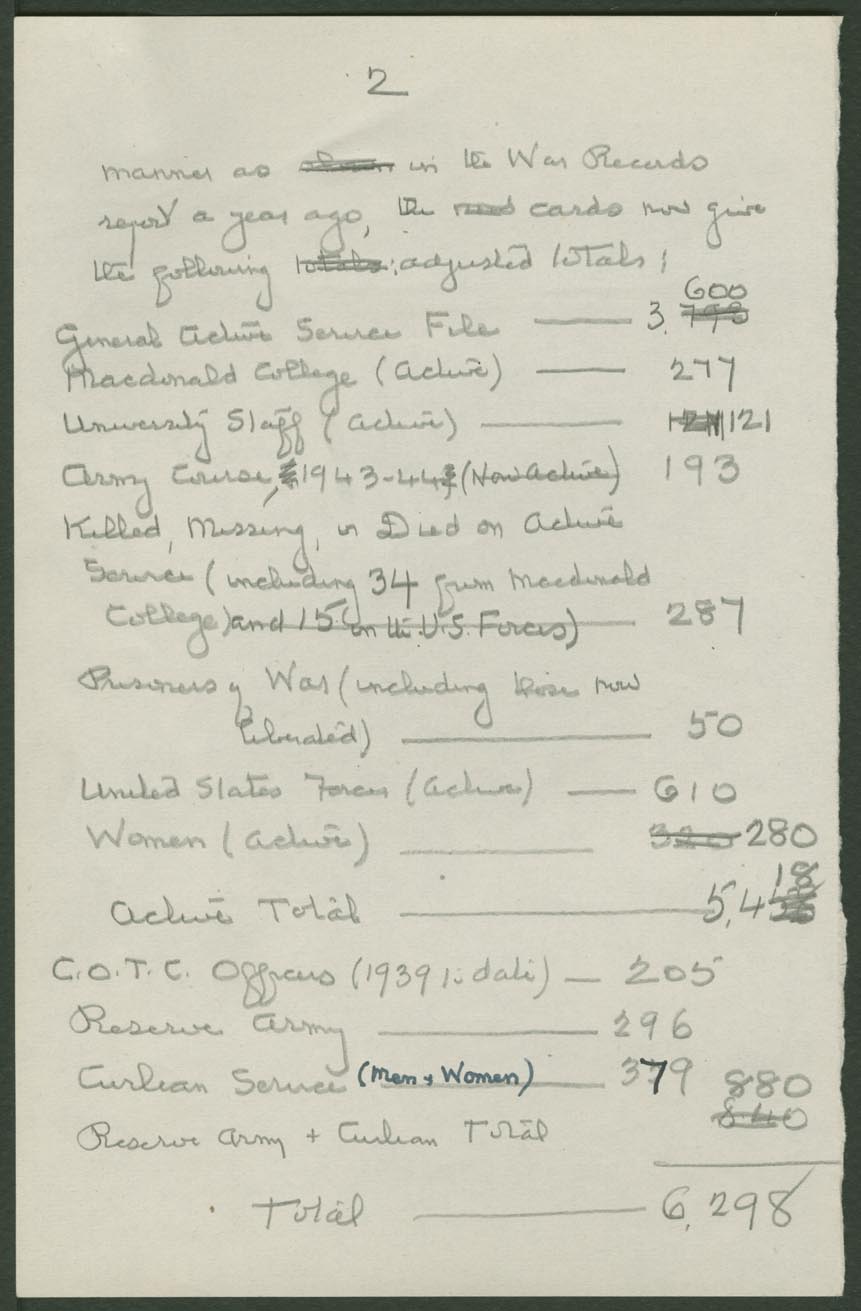 2
manner as in the War Records
report a year ago, the cards now give
the following totals: adjusted totals:
600
General Active Service File —— 3,798
Macdonald College (Active) —— 277
University Staff (Active) —— 121 121
Army Course, 1943-44 (Now Active) 193
Killed, Missing, or Died on Active
Service (including 34 from Macdonald
College) and 15 (in the U.S. Forces) —— 287
Prisoners of War (including those now
liberated) —— 50
United States Forces (Active) —— 610
Women (Active) —— 320 280
18
Active Total —— 5,4
C.O.T.C. Officers (1939 to date) — 205
Reserve Army —— 296
Civilian Service (Men & Women) —— 379 880
840
Reserve Army + Civilian Total
Total —— 6,298